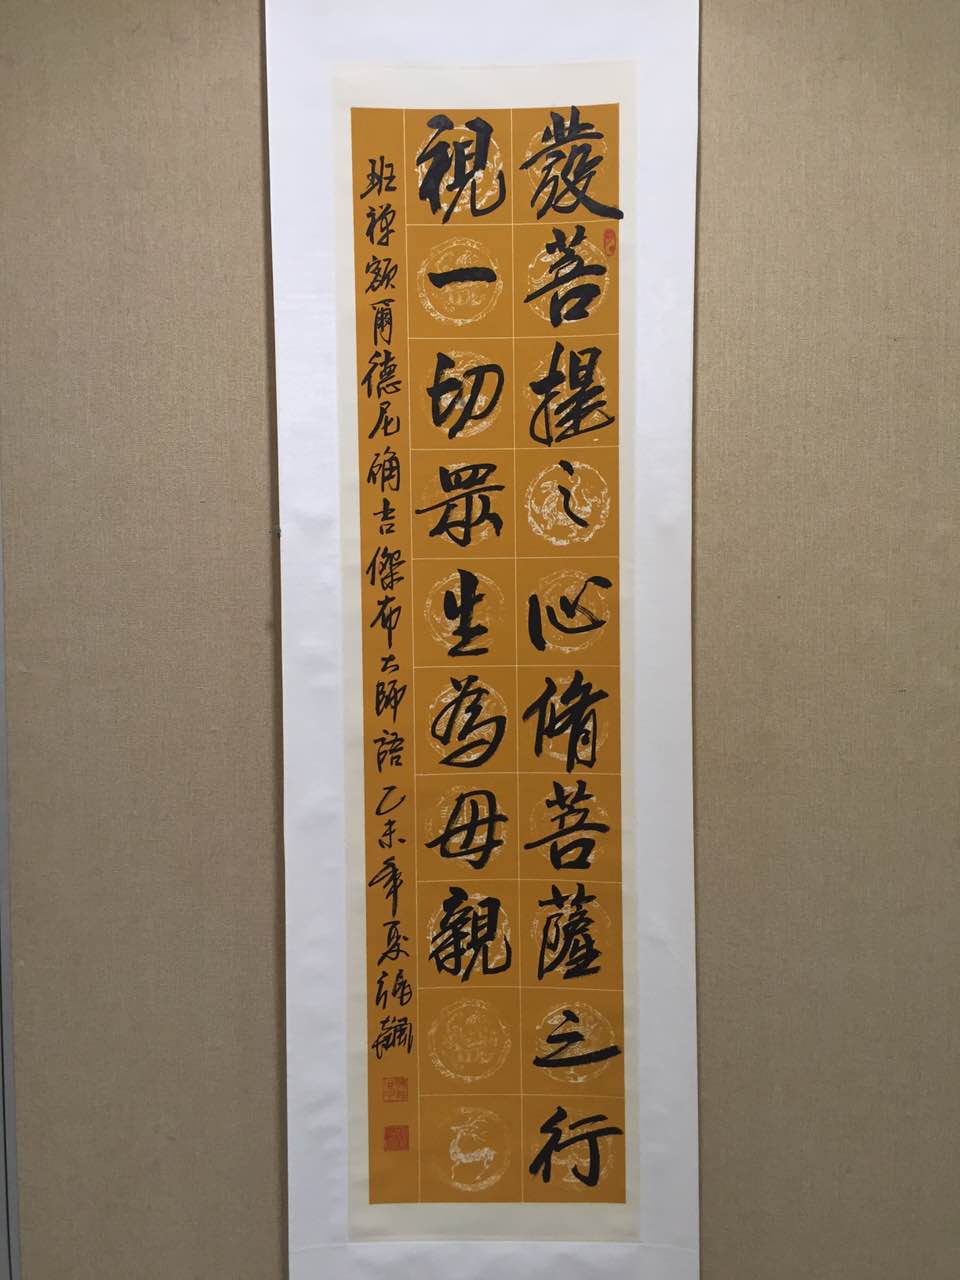 發菩提之心脩菩薩之行
視一切眾生為母親
班禅額爾德尼确吉傑布大師語乙未年夏